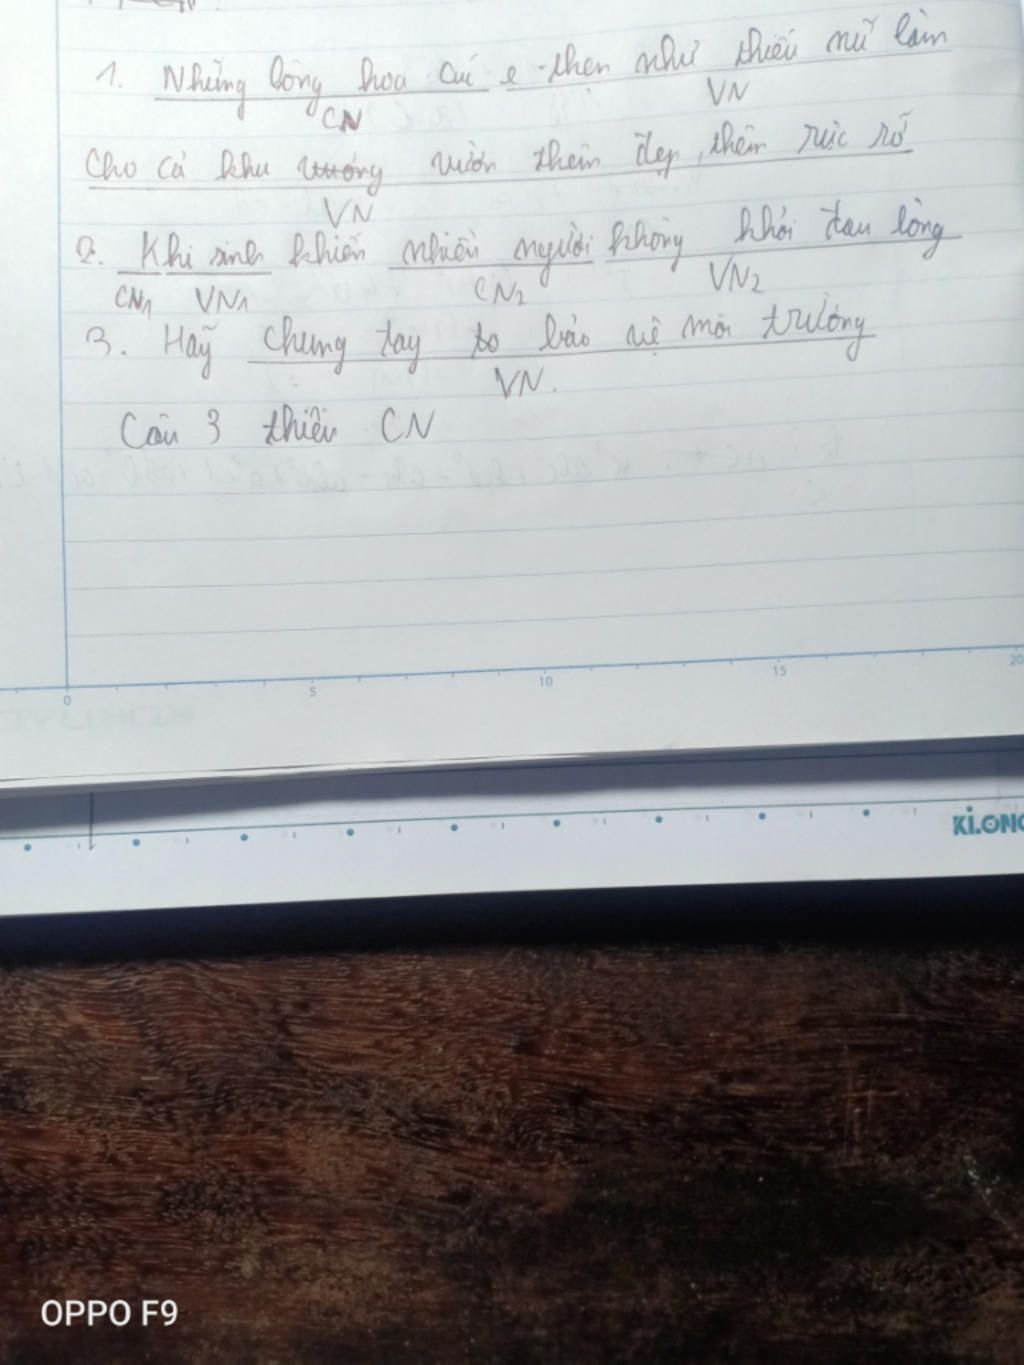 1. Những bông hoa cúc e thẹn như thiếu nữ làm
CN VN
Cho cả khu vườn thêm đẹp, thêm rực rỡ
VN
2. Khi sinh khiến nhiều người không khỏi đau lòng
CN1 VN1 CN2 VN2
3. Hãy chung tay bảo vệ môi trường
VN.
Câu 3 thiếu CN
0 5 10 15 20
KLONG
OPPO F9